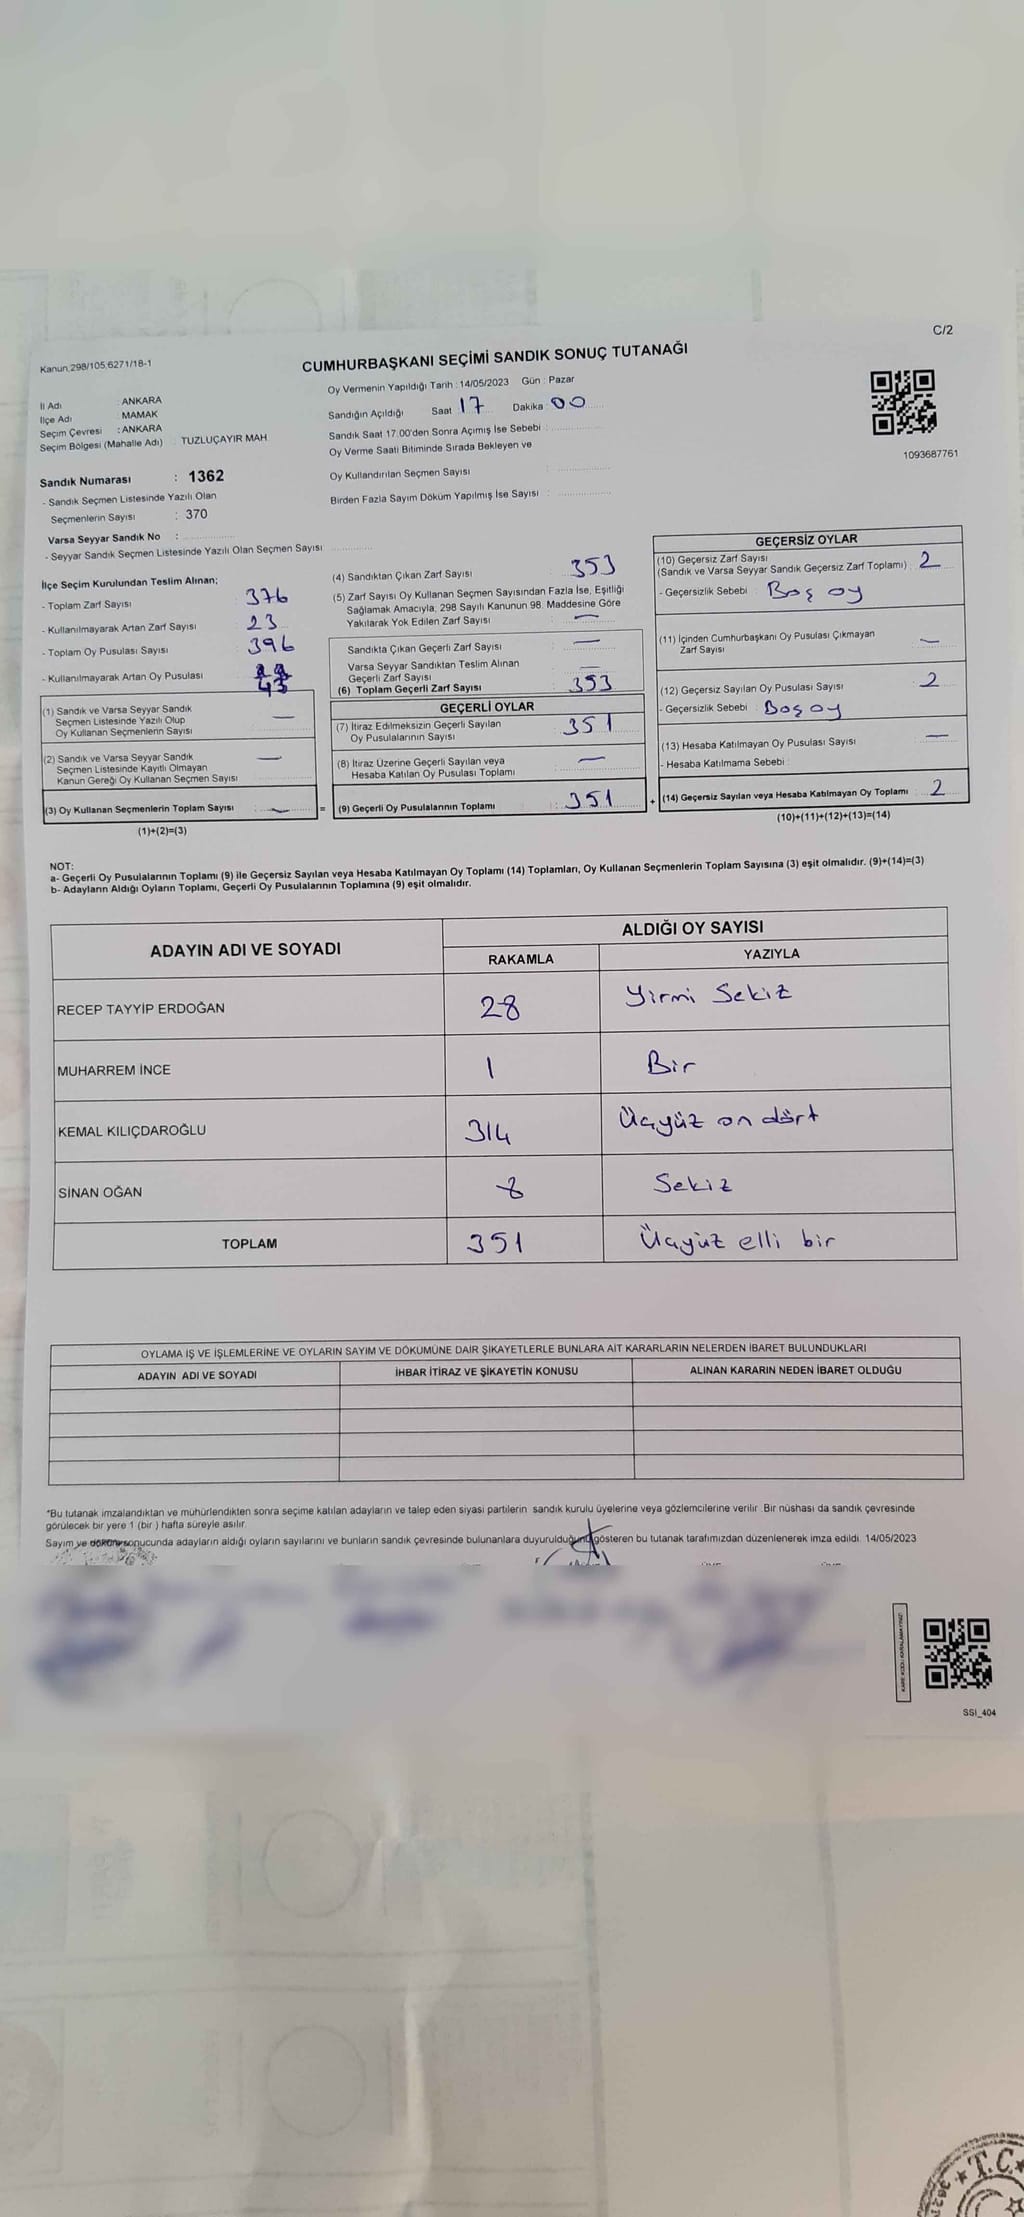 C/2
Kanun.298/105;6271/18-1
CUMHURBAŞKANI SEÇİMİ SANDIK SONUÇ TUTANAĞI
Oy Vermenin Yapıldığı Tarih : 14/05/2023 Gün : Pazar
İl Adı : ANKARA
İlçe Adı : MAMAK
Seçim Çevresi : ANKARA
Seçim Bölgesi (Mahalle Adı) : TUZLUÇAYIR MAH
Sandığın Açıldığı Saat 17 Dakika 00
Sandık Saat 17.00'den Sonra Açımış İse Sebebi :
Oy Verme Saati Bitiminde Sırada Bekleyen ve
Oy Kullandırılan Seçmen Sayısı :
Birden Fazla Sayım Döküm Yapılmış İse Sayısı :
1093687761
Sandık Numarası : 1362
- Sandık Seçmen Listesinde Yazılı Olan
Seçmenlerin Sayısı : 370
Varsa Seyyar Sandık No :
- Seyyar Sandık Seçmen Listesinde Yazılı Olan Seçmen Sayısı
İlçe Seçim Kurulundan Teslim Alınan;
- Toplam Zarf Sayısı 376
- Kullanılmayarak Artan Zarf Sayısı 23
- Toplam Oy Pusulası Sayısı 396
- Kullanılmayarak Artan Oy Pusulası 43
(1) Sandık ve Varsa Seyyar Sandık
Seçmen Listesinde Yazılı Olup
Oy Kullanan Seçmenlerin Sayısı —
(2) Sandık ve Varsa Seyyar Sandık
Seçmen Listesinde Kayıtlı Olmayan
Kanun Gereği Oy Kullanan Seçmen Sayısı —
(3) Oy Kullanan Seçmenlerin Toplam Sayısı —
(1)+(2)=(3)
(4) Sandıktan Çıkan Zarf Sayısı 353
(5) Zarf Sayısı Oy Kullanan Seçmen Sayısından Fazla İse, Eşitliği
Sağlamak Amacıyla, 298 Sayılı Kanunun 98. Maddesine Göre
Yakılarak Yok Edilen Zarf Sayısı —
Sandıkta Çıkan Geçerli Zarf Sayısı —
Varsa Seyyar Sandıktan Teslim Alınan
Geçerli Zarf Sayısı —
(6) Toplam Geçerli Zarf Sayısı 353
GEÇERLİ OYLAR
(7) İtiraz Edilmeksizin Geçerli Sayılan
Oy Pusulalarının Sayısı 351
(8) İtiraz Üzerine Geçerli Sayılan veya
Hesaba Katılan Oy Pusulası Toplamı —
= (9) Geçerli Oy Pusulalarının Toplamı : 351
GEÇERSİZ OYLAR
(10) Geçersiz Zarf Sayısı
(Sandık ve Varsa Seyyar Sandık Geçersiz Zarf Toplamı) : 2
- Geçersizlik Sebebi : Boş oy
(11) İçinden Cumhurbaşkanı Oy Pusulası Çıkmayan
Zarf Sayısı —
(12) Geçersiz Sayılan Oy Pusulası Sayısı 2
- Geçersizlik Sebebi : Boş oy
(13) Hesaba Katılmayan Oy Pusulası Sayısı —
- Hesaba Katılmama Sebebi :
+ (14) Geçersiz Sayılan veya Hesaba Katılmayan Oy Toplamı 2
(10)+(11)+(12)+(13)=(14)
NOT:
a- Geçerli Oy Pusulalarının Toplamı (9) ile Geçersiz Sayılan veya Hesaba Katılmayan Oy Toplamı (14) Toplamları, Oy Kullanan Seçmenlerin Toplam Sayısına (3) eşit olmalıdır. (9)+(14)=(3)
b- Adayların Aldığı Oyların Toplamı, Geçerli Oy Pusulalarının Toplamına (9) eşit olmalıdır.
ADAYIN ADI VE SOYADI ALDIĞI OY SAYISI
RAKAMLA YAZIYLA
RECEP TAYYİP ERDOĞAN 28 Yirmi Sekiz
MUHARREM İNCE 1 Bir
KEMAL KILIÇDAROĞLU 314 Üçyüz on dört
SİNAN OĞAN 8 Sekiz
TOPLAM 351 Üçyüz elli bir
OYLAMA İŞ VE İŞLEMLERİNE VE OYLARIN SAYIM VE DÖKÜMÜNE DAİR ŞİKAYETLERLE BUNLARA AİT KARARLARIN NELERDEN İBARET BULUNDUKLARI
ADAYIN ADI VE SOYADI İHBAR İTİRAZ VE ŞİKAYETİN KONUSU ALINAN KARARIN NEDEN İBARET OLDUĞU
*Bu tutanak imzalandıktan ve mühürlendikten sonra seçime katılan adayların ve talep eden siyasi partilerin sandık kurulu üyelerine veya gözlemcilerine verilir. Bir nüshası da sandık çevresinde
görülecek bir yere 1 (bir ) hafta süreyle asılır.
Sayım ve döküm sonucunda adayların aldığı oyların sayılarını ve bunların sandık çevresinde bulunanlara duyurulduğunu gösteren bu tutanak tarafımızdan düzenlenerek imza edildi. 14/05/2023
KARE KODU KARALAMAYINIZ!
SSI_404
T.C.